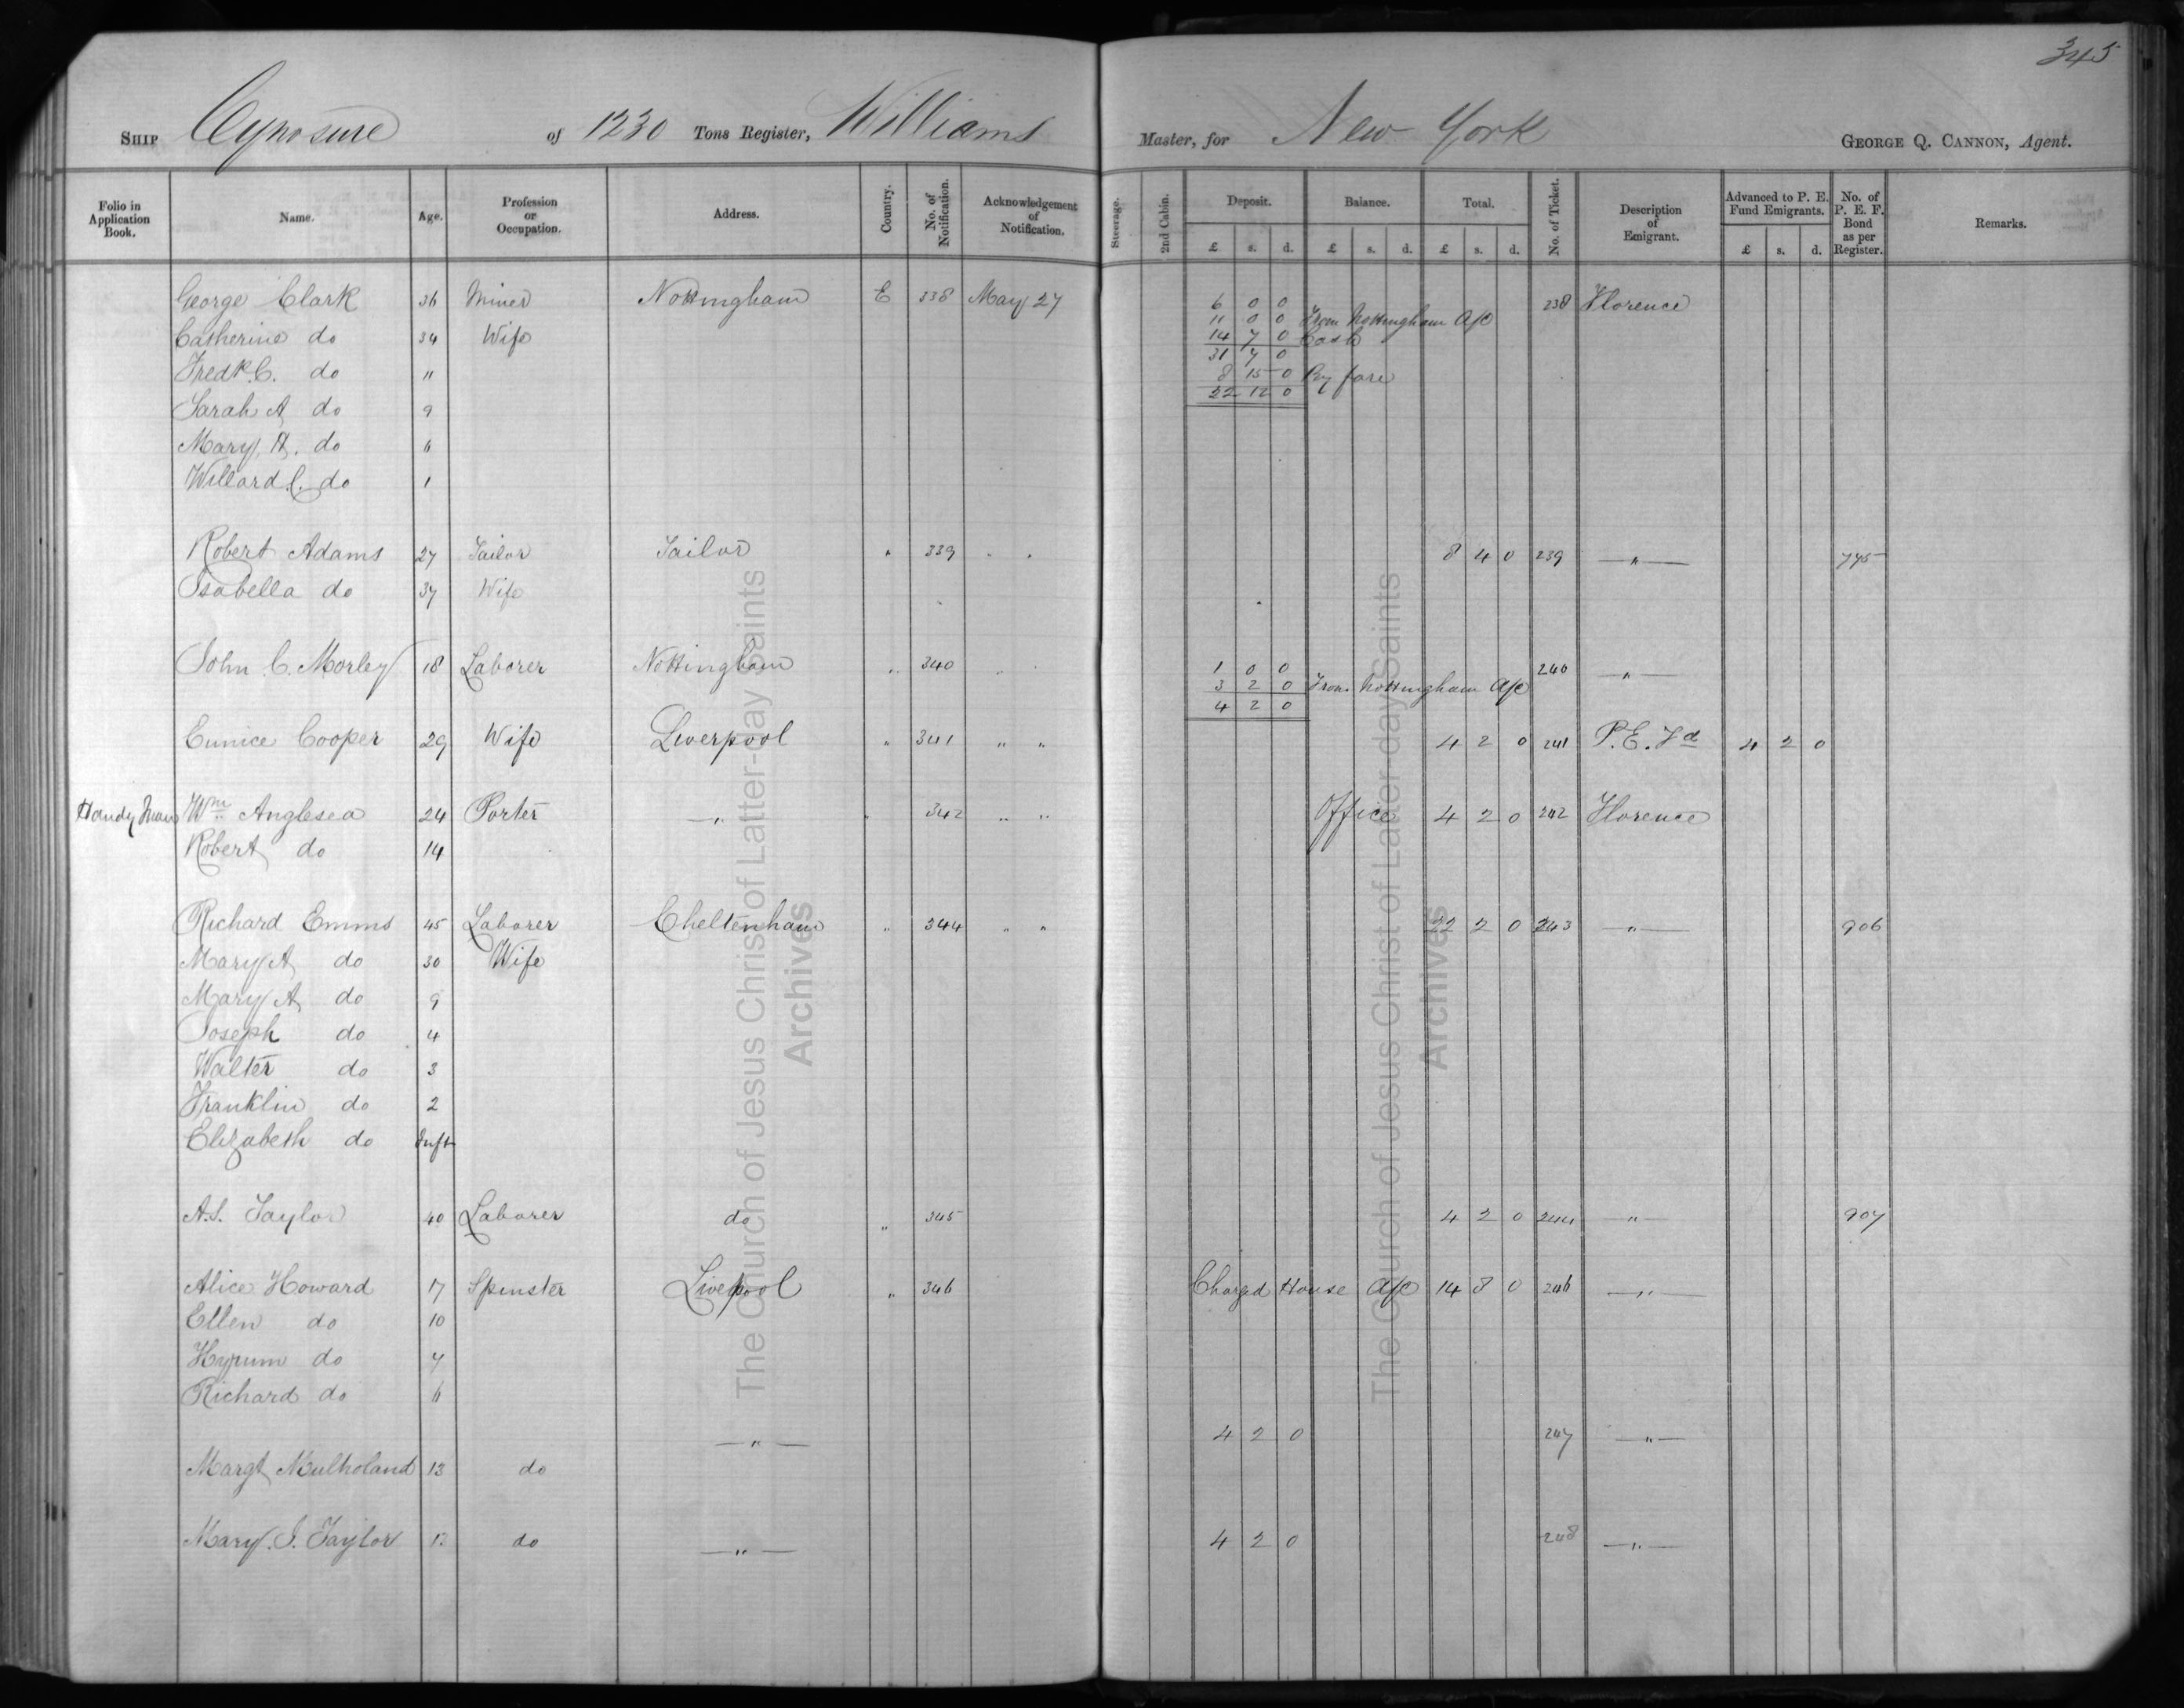 345
Ship Cynosure of 1230 Tons Register, Williams Master, for New York George Q. Cannon, Agent.
Folio in Application Book. Name. Age. Profession or Occupation. Address. Country. No. of Notification. Acknowledgement of Notification. Steerage. 2nd Cabin. Deposit. Balance. Total. No. of Ticket. Description of Emigrant. Advanced to P. E. Fund Emigrants. No. of P. E. F. Bond as per Register. Remarks.
£ s. d. £ s. d. £ s. d. £ s. d.
George Clark 36 Miner Nottingham E 338 May 27 6 0 0 238 Florence
11 0 0 From Nottingham A/c
Catherine do 34 Wife 14 7 0 Cash
31 7 0
Fredk. C. do 11 8 15 0 By fare
22 12 0
Sarah A do 9
Mary A. do 6
Willard C. do 1
Robert Adams 27 Tailor Tailor " 339 " " 8 4 0 239 — " — 775
Isabella do 37 Wife
John C. Morley 18 Laborer Nottingham " 340 " 1 0 0 240 — " —
3 2 0 From Nottingham A/c
4 2 0
Eunice Cooper 29 Wife Liverpool " 341 " " 4 2 0 241 P.E. Fd 4 2 0
Handy Man Wm Anglesea 24 Porter — " " 342 " " Office 4 2 0 242 Florence
Robert do 14
Richard Emms 45 Laborer Cheltenham " 344 " " 22 2 0 243 — " — 906
Mary A do 30 Wife
Mary A do 9
Joseph do 4
Walter do 3
Franklin do 2
Elizabeth do Inft
A.S. Taylor 40 Laborer do " 345 4 2 0 244 — " — 907
Alice Howard 17 Spinster Livepool " 346 Charged House A/c 14 8 0 246 — " —
Ellen do 10
Hyrum do 7
Richard do 6
— " — 4 2 0 247 — " —
Margt Mulholand 13 do
Mary. J. Taylor do — " — 4 2 0 248 — " —
The Church of Jesus Christ of Latter-day Saints
Archives
The Church of Jesus Christ of Latter-day Saints
Archives